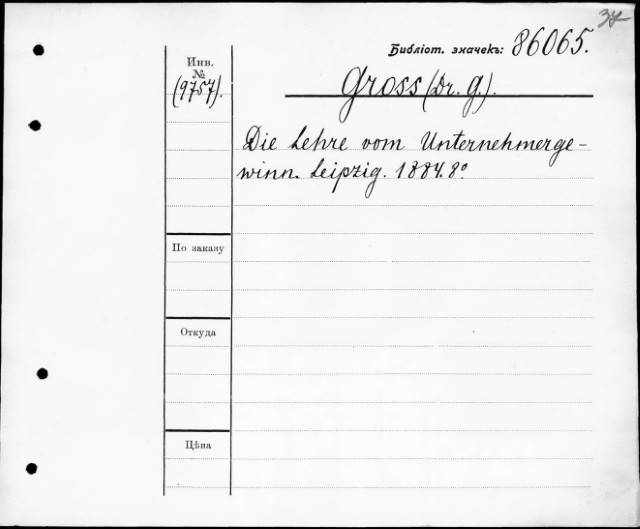 Библіот. значекъ: 86065.
Инв.
№
(9757).
Gross (Dr. G.).
Die Lehre vom Unternehmerge-
winn. Leipzig. 1884. 8º
По заказу
Откуда
Цѣна